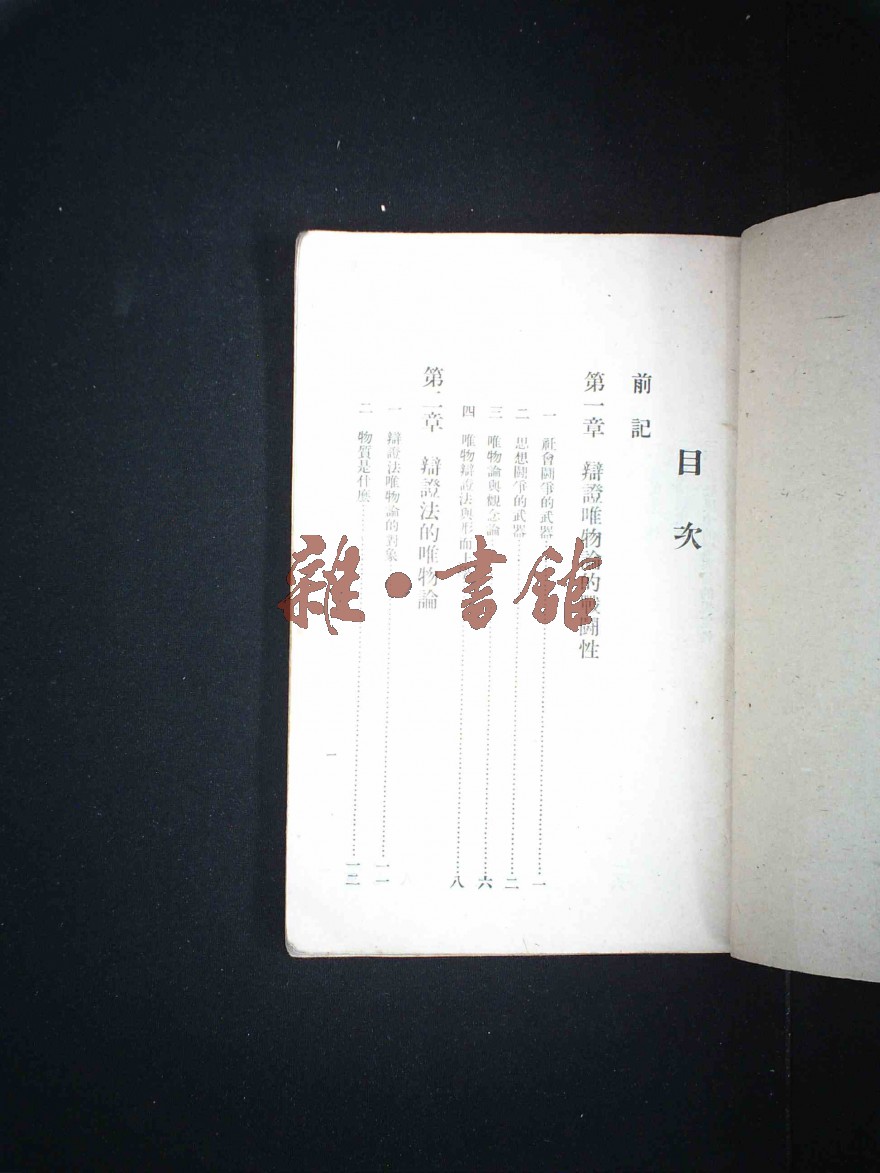 目次
前記
第一章 辯證唯物論的戰鬭性
一 社會鬭爭的武器……一
二 思想鬭爭的武器……二
三 唯物論與觀念論……六
四 唯物辯證法與形而上……八
第二章 辯證法的唯物論
一 辯證法唯物論的對象……一一
二 物質是什麽……一二
一
雜·書館